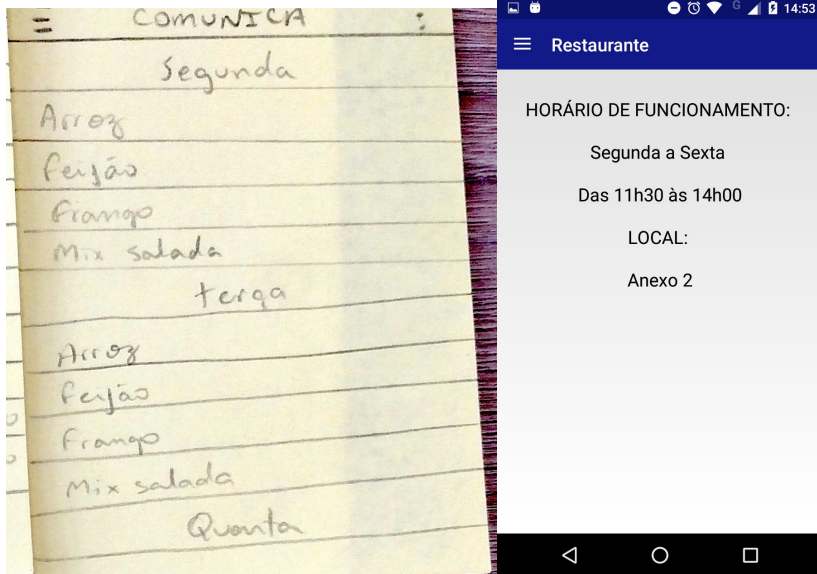 COMUNICA
Segunda
Arroz
Feijão
Frango
Mix salada
terça
Arroz
Feijão
Frango
Mix salada
Quanta
G 14:53
Restaurante
HORÁRIO DE FUNCIONAMENTO:
Segunda a Sexta
Das 11h30 às 14h00
LOCAL:
Anexo 2